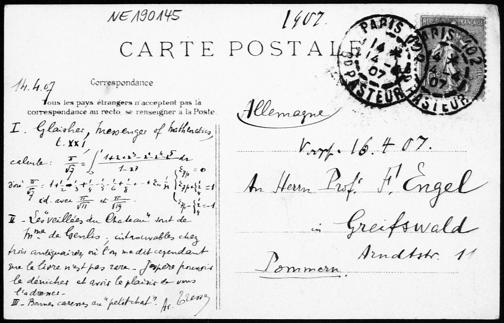 NE190145
1907.
CARTE POSTALE
PARIS 102
14
07
PASTEUR
PARIS 102
07
PASTEUR
14.4.07
Correspondance
Tous les pays étrangers n'acceptent pas la
correspondance au recto, se renseigner à la Poste.
I. Glaisher, messenger of Mathematics,
t. XXI
calcule
id. avec et
II - Les "veillées du Chateau" sont de
Mme de Genlis, introuvables chez
trois antiquaires, où l'on me dit cependant
que le livre n'est pas rare - J'espère pouvoir
le dénicher et avoir le plaisir de vous
l'adresser.
III - Bonnes caresses au "petit chat".
Allemagne
16.4.07.
An Herrn Prof. F. Engel
in Greifswald
Arndtstr. 11
Pommern.